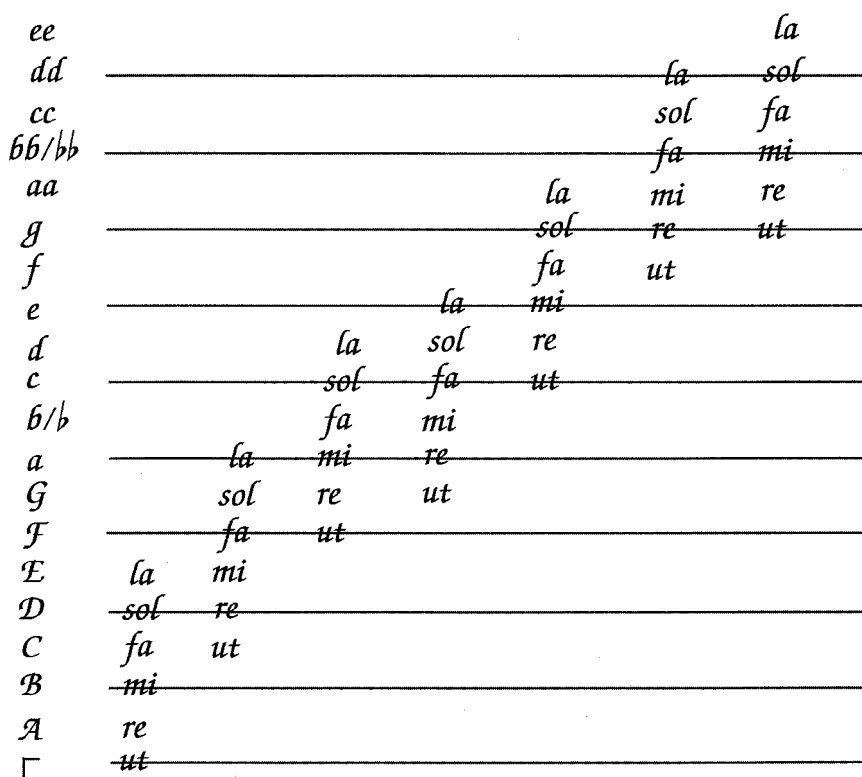 ee la
dd la sol
cc sol fa
bb/♭♭ fa mi
aa la mi re
g sol re ut
f fa ut
e la mi
d la sol re
c sol fa ut
b/♭ fa mi
a la mi re
G sol re ut
F fa ut
E la mi
D sol re
C fa ut
B mi
A re
Γ ut